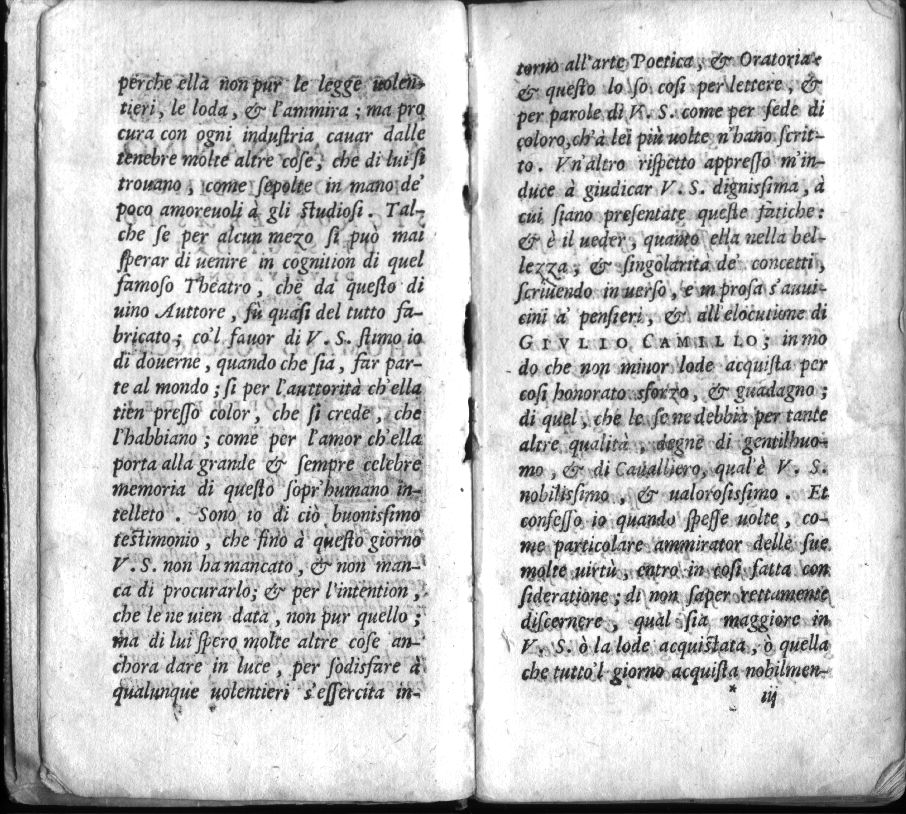 perche ella non pur le legge uolen-
tieri, le loda, & l'ammira; ma pro
cura con ogni industria cauar dalle
tenebre molte altre cose, che di lui si
trouano, come sepolte in mano de'
poco amoreuoli à gli studiosi. Tal-
che se per alcun mezo si può mai
sperar di uenire in cognition di quel
famoso Theatro, che da questo di
uino Auttore, fù quasi del tutto fa-
bricato; co'l fauor di V. S. stimo io
di douerne, quando che sia, far par-
te al mondo; si per l'auttorità ch'ella
tien presso color, che si crede, che
l'habbiano; come per l'amor ch'ella
porta alla grande & sempre celebre
memoria di questo sopr'humano in-
telleto. Sono io di ciò buonissimo
testimonio, che fino à questo giorno
V. S. non ha mancato, & non man-
ca di procurarlo; & per l'intention,
che le ne uien data, non pur quello;
ma di lui spero molte altre cose an-
chora dare in luce, per sodisfare à
qualunque uolentieri s'essercita in-
torno all'arte Poetica, & Oratoria:
& questo lo so cosi per lettere, &
per parole di V. S. come per fede di
coloro, ch'à lei più uolte n'hãno scrit-
to. Vn'altro rispetto appresso m'in-
duce à giudicar V. S. dignissima, à
cui siano presentate queste fatiche:
& è il ueder, quanto ella nella bel-
lezza, & singolarità de' concetti,
scriuendo in uerso, e in prosa s'auui-
cini a' pensieri, & all'elocutione di
GIVLIO CAMILLO; in mo
do che non minor lode acquista per
cosi honorato sforzo, & guadagno;
di quel, che le se ne debbia per tante
altre qualità, degne di gentilhuo-
mo, & di Caualliero, qual'è V. S.
nobilissimo, & ualorosissimo. Et
confesso io quando spesse uolte, co-
me particolare ammirator delle sue
molte uirtù, entro in cosi fatta con
sideratione; di non saper rettamente
discernere, qual sia maggiore in
V. S. ò la lode acquistata, ò quella
che tutto'l giorno acquista nobilmen-
* iij